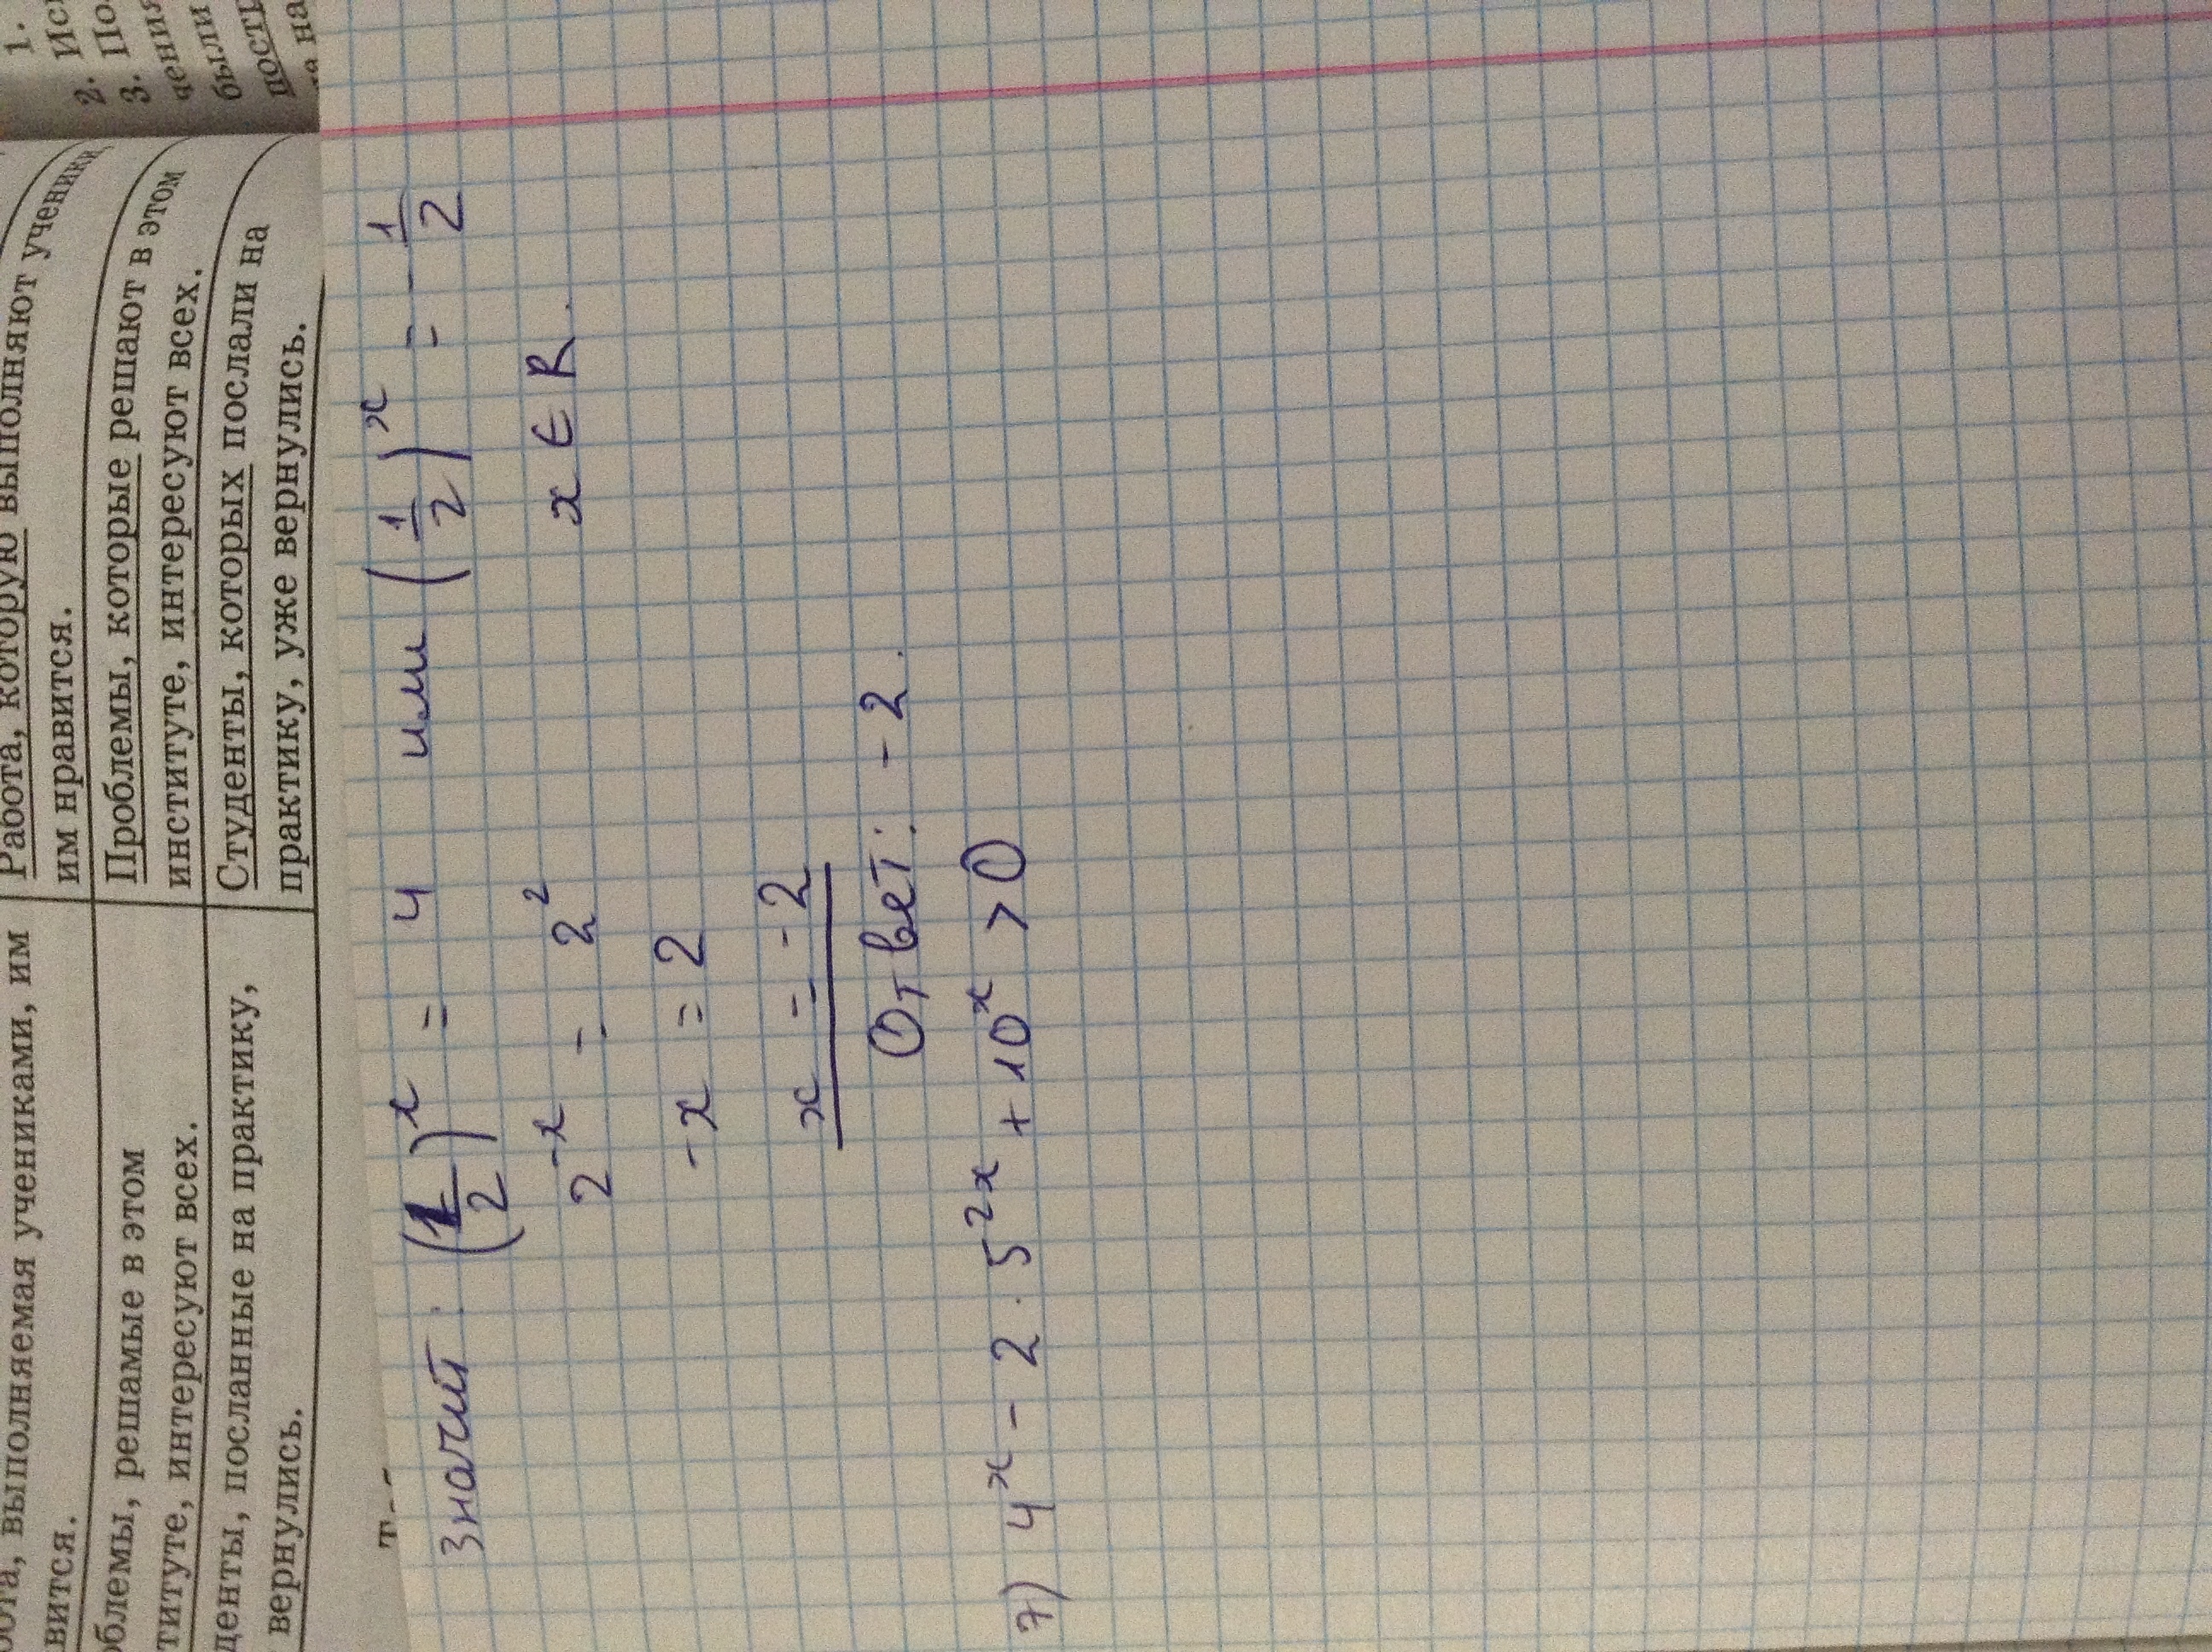 1.
2. Ис
3. По
цения
были
ность
на
вота, выполняемая учениками, им
вится.
Работа, которую выполняют ученики,
им нравится.
облемы, решамые в этом
титуте, интересуют всех.
Проблемы, которые решают в этом
институте, интересуют всех.
денты, посланные на практику,
вернулись.
Студенты, которых послали на
практику, уже вернулись.
значит: (1/2)^x = 4 или (1/2)^x = -1/2
2^-x = 2^2 x ∈ R.
-x = 2
x = -2
Ответ: -2.
7) 4^x - 2 · 5^2x + 10^x > 0